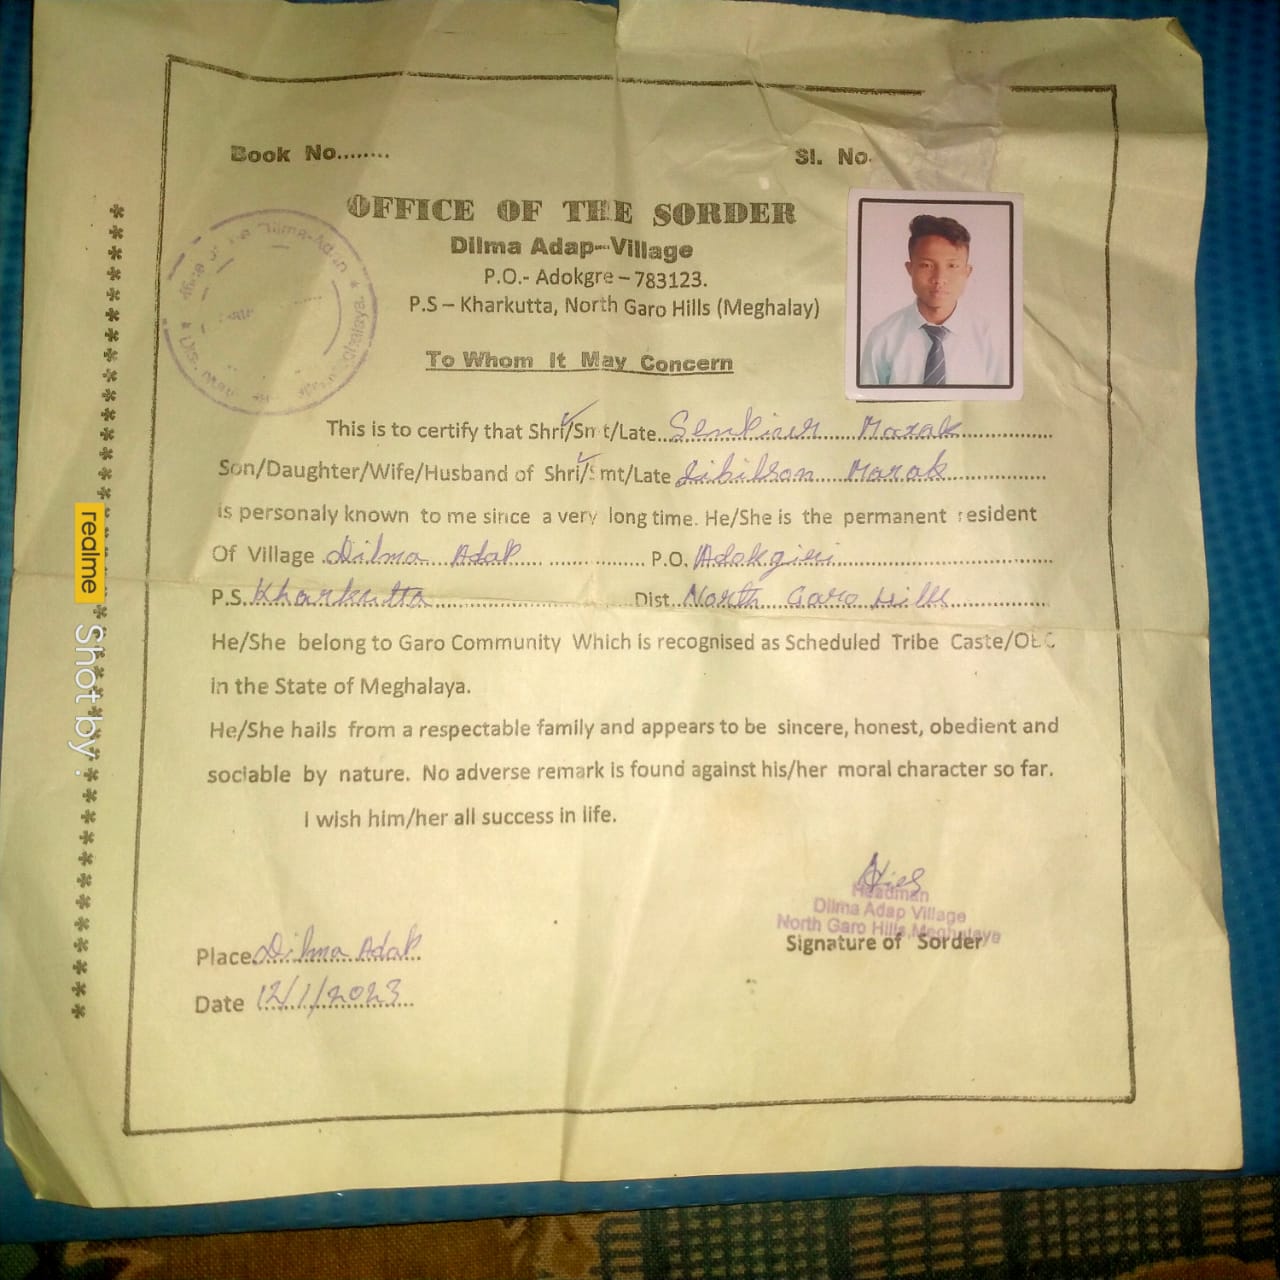 Book No........
Sl. No.
OFFICE OF THE SORDER
Dilma Adap-Village
P.O.- Adokgre – 783123.
P.S – Kharkutta, North Garo Hills (Meghalay)
To Whom It May Concern
This is to certify that Shri/Smt/Late Marak
Son/Daughter/Wife/Husband of Shri/Smt/Late Marak
is personaly known to me since a very long time. He/She is the permanent resident
Of Village Dilma Adap P.O. Adokgiri
P.S. Kharkutta Dist. North Garo Hills
He/She belong to Garo Community Which is recognised as Scheduled Tribe Caste/OBC
in the State of Meghalaya.
He/She hails from a respectable family and appears to be sincere, honest, obedient and
sociable by nature. No adverse remark is found against his/her moral character so far.
I wish him/her all success in life.
Headman
Dilma Adap Village
North Garo Hills, Meghalaya
Signature of Sorder
Place Dilma Adap
Date 12/1/2023
realme Shot by :